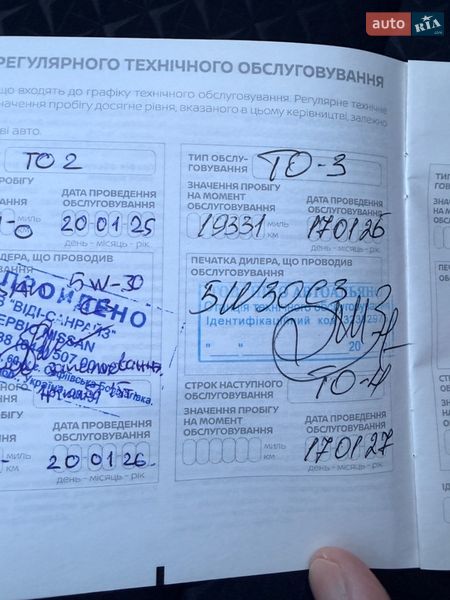 auto RIA
РЕГУЛЯРНОГО ТЕХНІЧНОГО ОБСЛУГОВУВАННЯ
що входять до графіку технічного обслуговування. Регулярне технічне
значення пробігу досягне рівня, вказаного в цьому керівництві, залежно
ві авто.
ТО 2
ПРОБІГУ
ДАТА ПРОВЕДЕННЯ
ОБСЛУГОВУВАННЯ
МИЛЬ
КМ
20 01 25
день - місяць - рік
ДИЛЕРА, ЩО ПРОВОДИВ
5W-30
NISSAN
ДАТА ПРОВЕДЕННЯ
ОБСЛУГОВУВАННЯ
миль
км
20 01 26
день - місяць - рік
ТИП ОБСЛУ-
ГОВУВАННЯ
ТО-3
ЗНАЧЕННЯ ПРОБІГУ
НА МОМЕНТ
ОБСЛУГОВУВАННЯ
19331
миль
км
ДАТА ПРОВЕДЕННЯ
ОБСЛУГОВУВАННЯ
17 01 26
день - місяць - рік
ПЕЧАТКА ДИЛЕРА, ЩО ПРОВОДИВ
ОБСЛУГОВУВАННЯ
5W30C3
технічного обслуговування
Ідентифікаційний код
20
СТРОК НАСТУПНОГО
ОБСЛУГОВУВАННЯ
ТО-4
ЗНАЧЕННЯ ПРОБІГУ
НА МОМЕНТ
ОБСЛУГОВУВАННЯ
миль
км
ДАТА ПРОВЕДЕННЯ
ОБСЛУГОВУВАННЯ
17 01 27
день - місяць - рік